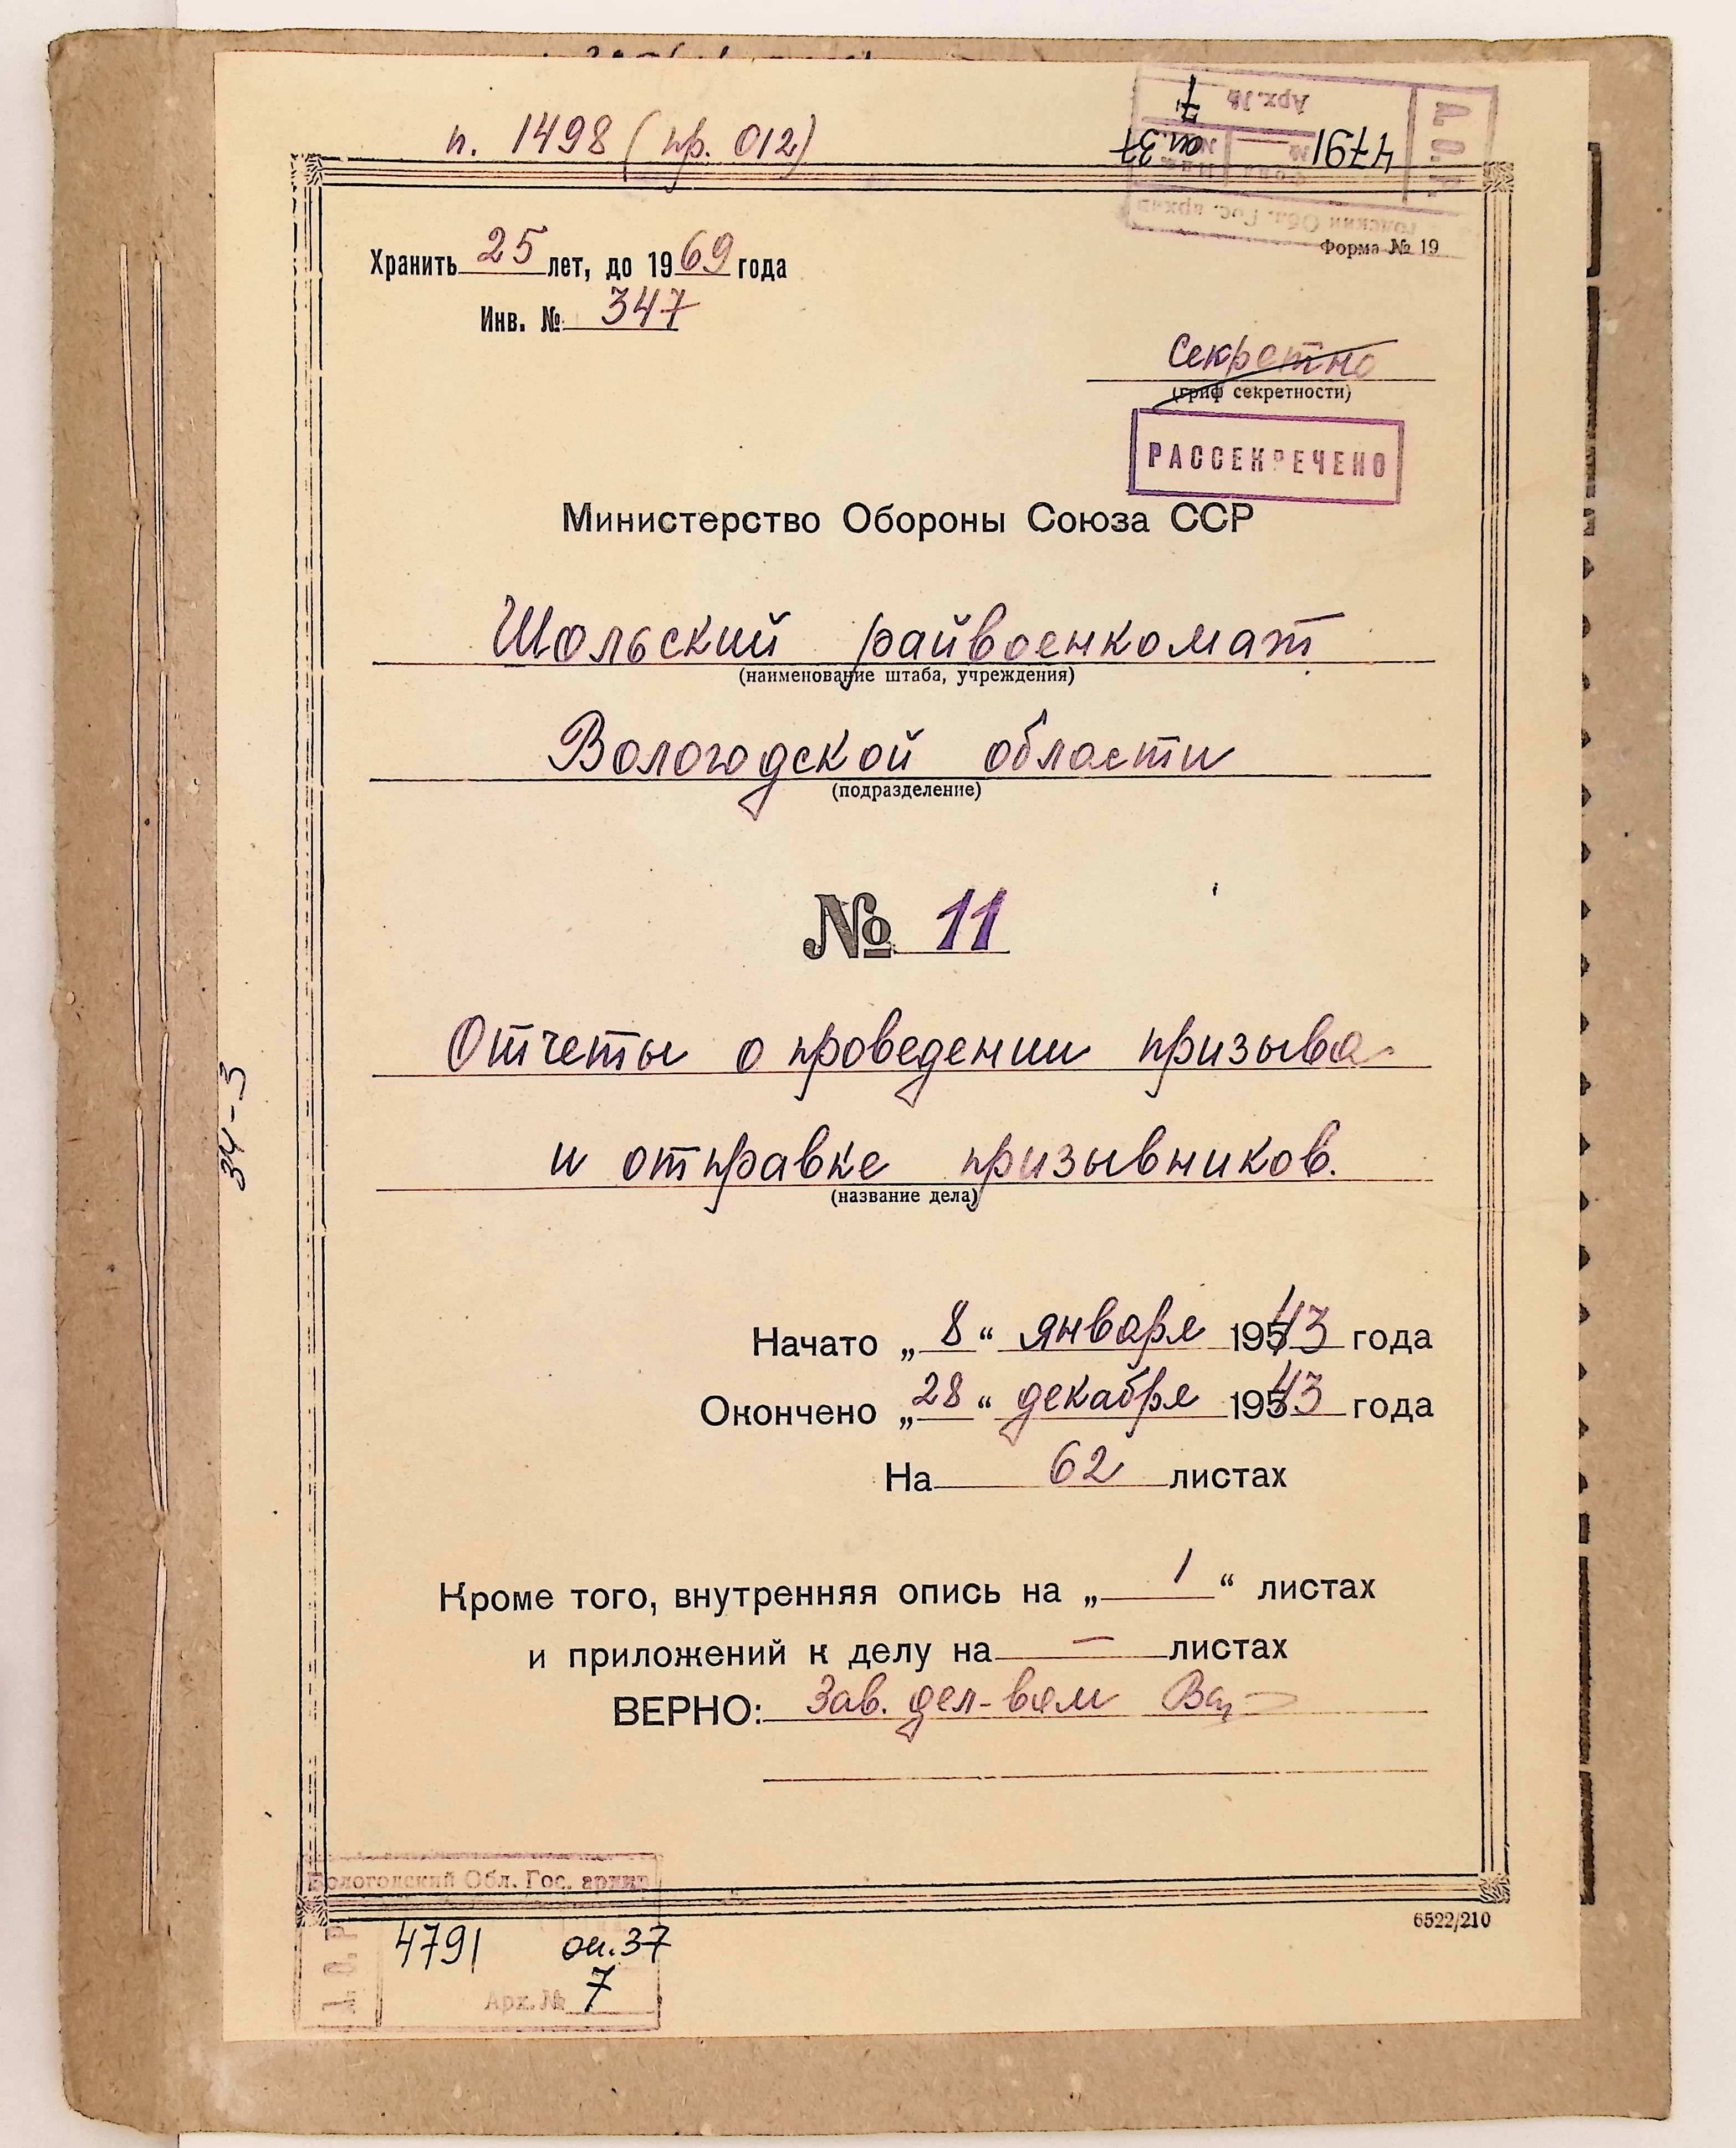 п. 1498 (пр. 012)
Арх. №
7
4791
оп.37
Д. О. Р.
Обл. Гос. архив
Форма № 19
Хранить 25 лет, до 1969 года
Инв. № 347
Секретно
(гриф секретности)
РАССЕКРЕЧЕНО
Министерство Обороны Союза ССР
Шольский райвоенкомат
(наименование штаба, учреждения)
Вологодской области
(подразделение)
№ 11
Отчеты о проведении призыва
и отправке призывников.
(название дела)
34-3
Начато „8“ января 1943 года
Окончено „28“ декабря 1943 года
На 62 листах
Кроме того, внутренняя опись на „1“ листах
и приложений к делу на — листах
ВЕРНО: Зав. дел-вом
Вологодский Обл. Гос. архив
4791 оп.37
Арх. № 7
6522/210